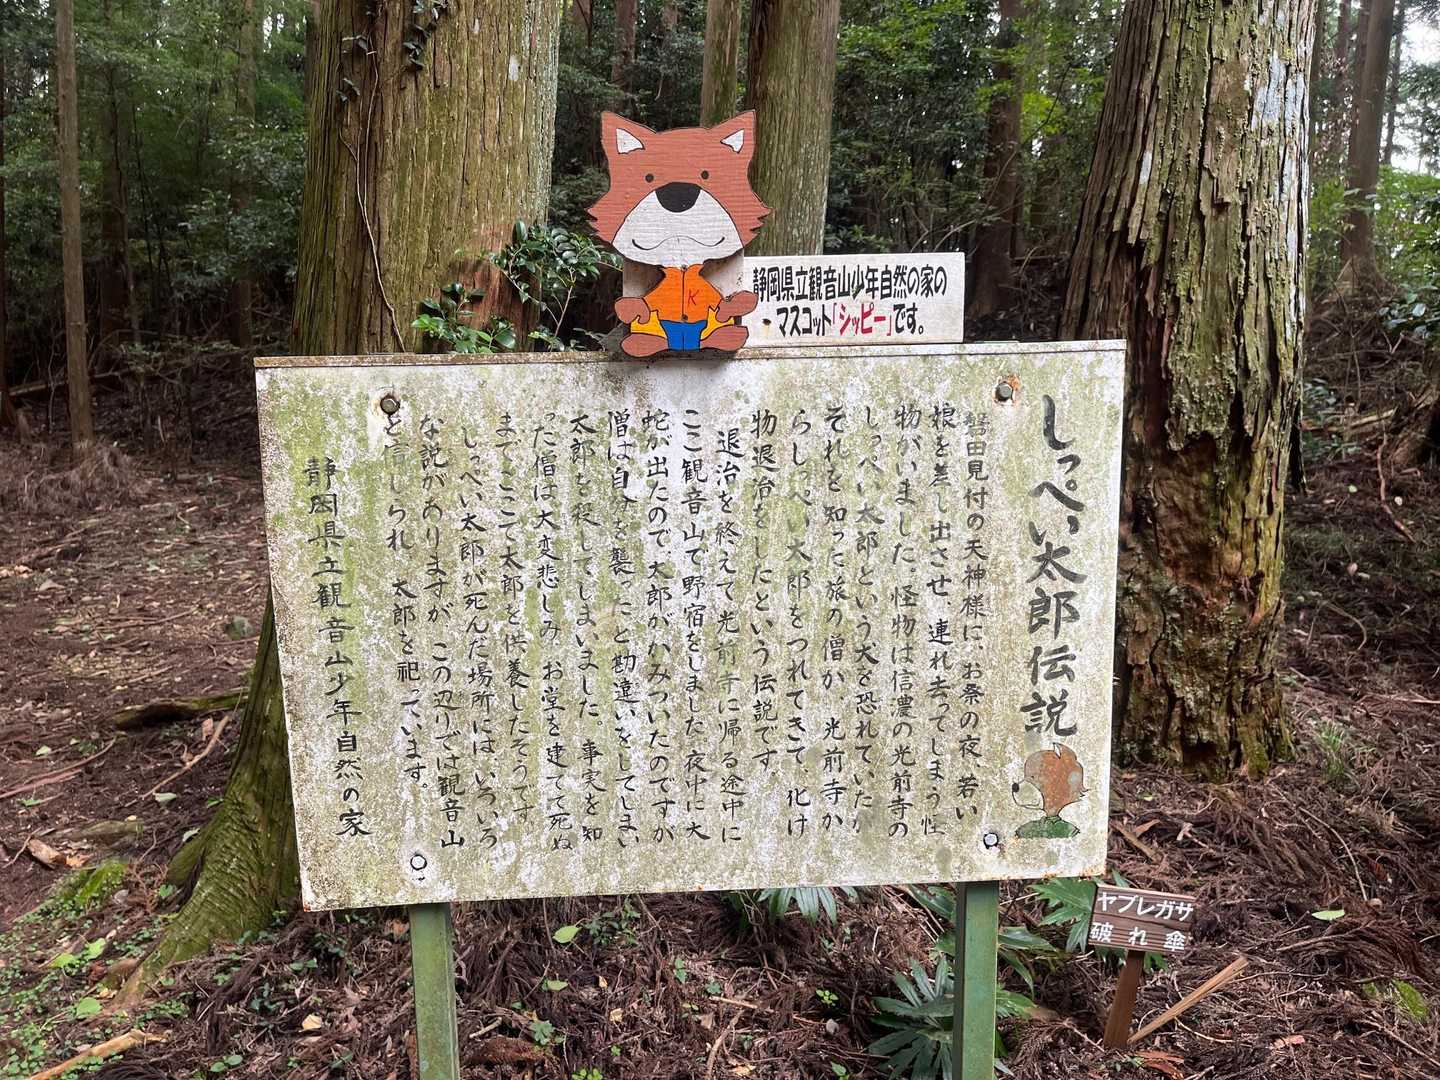 静岡県立観音山少年自然の家の
マスコット「シッピー」です。
しっぺい太郎伝説
磐田見付の天神様に、お祭の夜、若い
娘を差し出させ、連れ去ってしまう怪
物がいました。怪物は信濃の光前寺の
しっぺい太郎という犬を恐れていたが
それを知った旅の僧が、光前寺か
らしっぺい太郎をつれてきて、化け
物退治をしたという伝説です。
退治を終えて光前寺に帰る途中に
ここ観音山で野宿をしました。夜中に大
蛇が出たので、太郎がかみついたのですが
僧は自分を襲ったと勘違いをしてしまい
太郎を殺してしまいました。事実を知
った僧は大変悲しみ、お堂を建てて死ぬ
までここで太郎を供養したそうです。
しっぺい太郎が死んだ場所には、いろいろ
な説がありますが、この辺りでは観音山
と信じられ、太郎を祀っています。
静岡県立観音山少年自然の家
ヤブレガサ
破れ傘